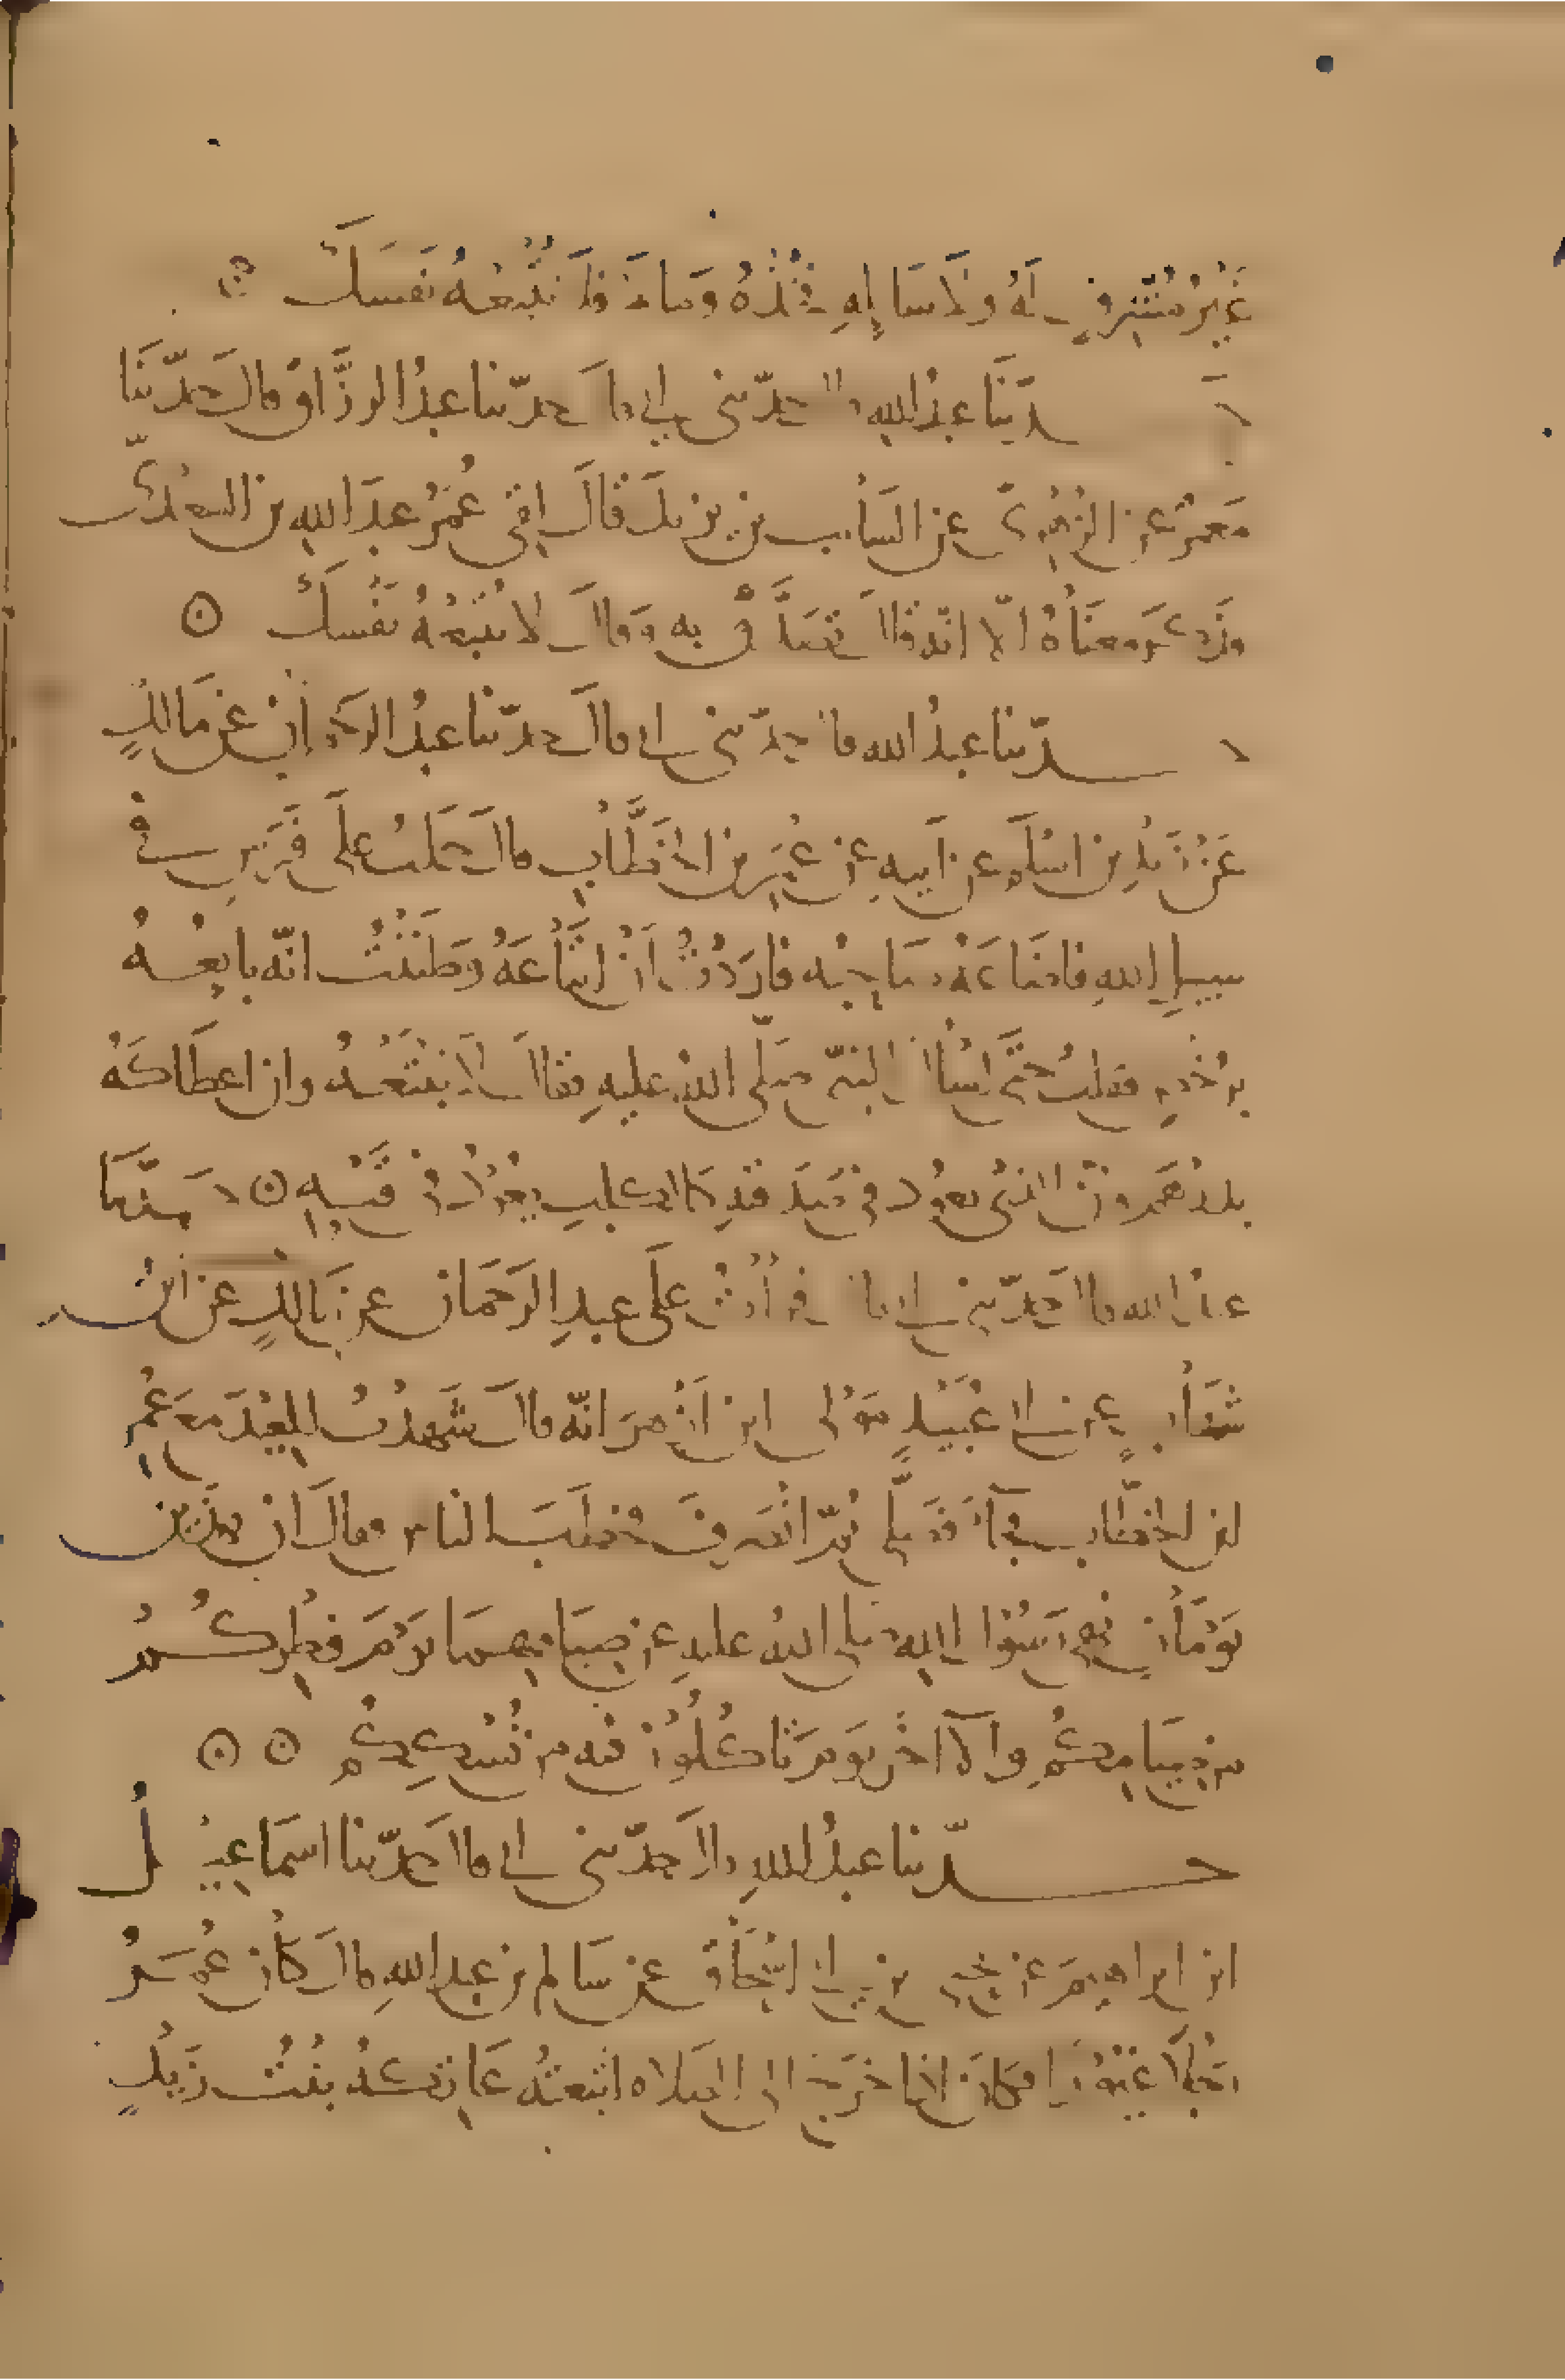 غَيْرُ مُشْرِفٍ لَهُ وَلَا سَائِلِهِ فَخُذْهُ وَمَا لَا فَلَا تُتْبِعْهُ نَفسَكَ
حدّثنَا عبدُ الله قال حدّثني ابي قالَ حدّثنا عبدُ الرزَّاقِ قالَ حَدّثنَا
مَعمرٌ عن الزُّهْرِيّ عن السَّائب بن يزيدَ قالَ لقِيَ عُمَرُ عبدَ اللهِ بن السعْدِيّ
فذكَرَ معنَاهُ الّا انّه قالَ تَصَدَّقْ به وَقالَ لا تُتْبِعْهُ نَفْسَكَ
حدّثنا عبدُ الله قال حدّثني ابي قالَ حدّثنا عبدُ الرحمان عن مَالكٍ
عَنْ زَيْدِ بن اسْلَمَ عن اَبيهِ عن عُمَرَ بن الخَطَّابِ قالَ حَمَلتُ علَى فَرَسٍ في
سبيلِ اللهِ فاضَاعَهُ صَاحِبُه فارَدْتُ اَنْ ابْتَاعَهُ وَظَنَنْتُ انّه بايِعُهُ
برُخْصٍ فقلتُ حتَّى اسْأَلَ النبيّ صَلّى اللهُ عليهِ فقالَ لَا تَبْتَعْهُ وان اعطَاكَهُ
بدِرْهَمٍ فانّ الذي يعُود في صَدَقتِهِ كالكلبِ يَعُودُ في قَيْئِهِ حدّثنَا
عبدُ الله قالَ حَدّثني ابي قالَ قرأْتُ علَى عبدِ الرَحمَان عن مَالكٍ عن ابن
شهَابٍ عن ابي عُبَيْدٍ مَوْلى ابن اَزْهرَ انّه قالَ شَهِدْتُ العِيْدَ مع عُمَر
ابن الخطّاب فجآءَ فصَلّى ثمّ انْصَرفَ فخَطَبَ الناسَ فقالَ انّ هذين
يَوْمَانِ نهى رَسُولُ اللهِ صلى اللهُ عليهِ عن صِيَامهما يَوْمَ فِطْرِكُمْ
من صِيَامِكُمْ والآخَر يَومٌ تَاكُلُونَ فيه من نُسُكِكُمْ
حدّثنا عبدُ اللهِ قالَ حدّثني ابي قالَ حَدّثنا اسمَاعِيْل
ابن ابراهيمَ عن يحيى بن ابي اسْحَاقَ عن سَالم بن عبد اللهِ قالَ كان عُمَرُ
رَجُلًا غَيُوْرًا فكَانَ اذا خرَجَ الى الصَلاه اتْبَعَتْهُ عَاتِكَةُ بنْتُ زَيْدٍ